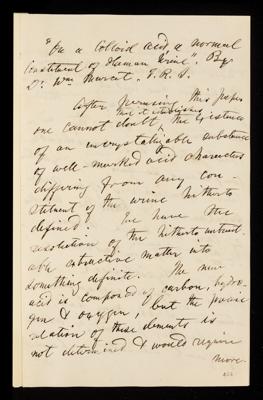 "On a Colloid acid, a normal
Constituent of Human Urine". By
Dr. Wm Marcet. F.R.S.
After perusing this paper
one cannot doubt that it establishes the existence
of an uncrystallizable substance
of well-marked acid characters
differing from any con-
stituent of the urine hitherto
defined. We have the
resolution of the hitherto
able extractive matter into
something definite. The new
acid is composed of carbon, hydro-
gen & oxygen, but the precise
relation of these elements is
not determined & would require
more